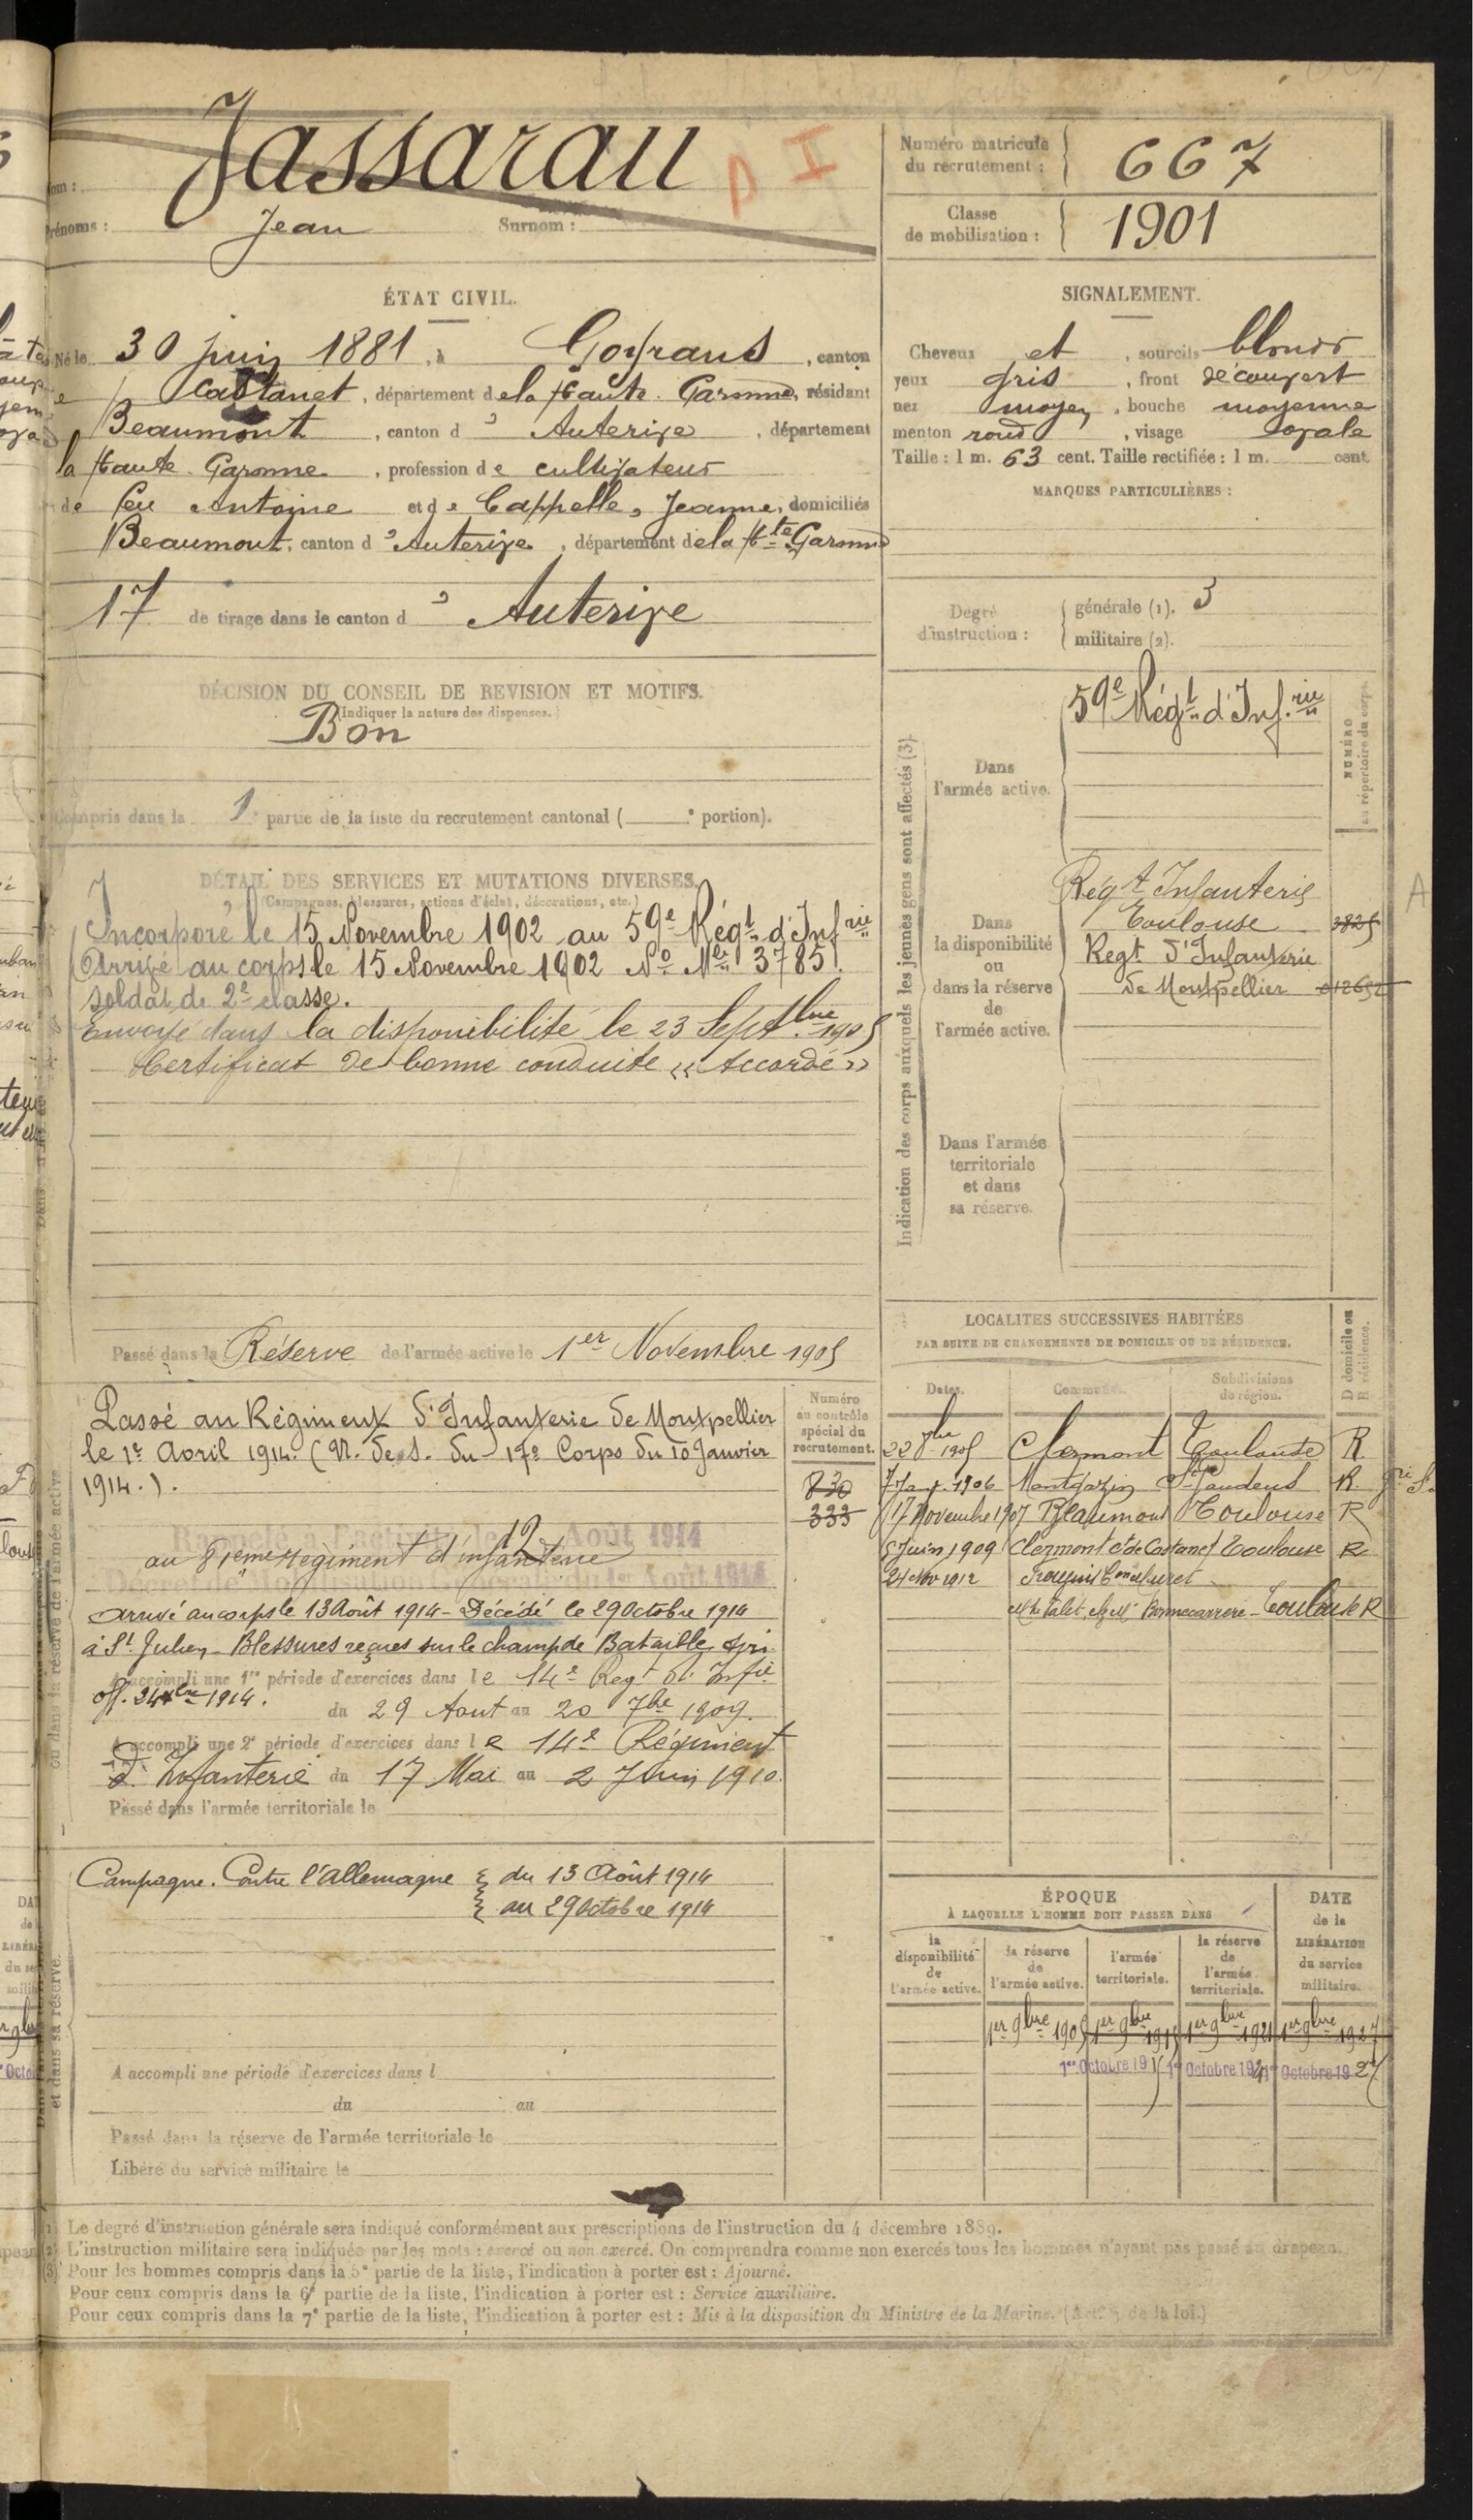 Nom : Jassarau
D I
Prénoms : Jean Surnom :
Numéro matricule du recrutement : 667
Classe de mobilisation : 1901
ÉTAT CIVIL.
Né le 30 juin 1881, à Goyrans, canton
Castanet, département de la Haute Garonne, résidant
Beaumont, canton d'Auterive, département
la Haute Garonne, profession de cultivateur
de feu Antoine et de Cappelle, Jeanne, domiciliés
Beaumont, canton d'Auterive, département de la Hte Garonne
17 de tirage dans le canton d'Auterive
SIGNALEMENT.
Cheveux et, sourcils blonds
yeux gris, front découvert
nez moyen, bouche moyenne
menton rond, visage ovale
Taille : 1 m. 63 cent. Taille rectifiée : 1 m. cent.
MARQUES PARTICULIÈRES :
Degré d'instruction :
générale (1). 3
militaire (2).
DÉCISION DU CONSEIL DE REVISION ET MOTIFS.
(Indiquer la nature des dispenses.)
Bon
Compris dans la 1e partie de la liste du recrutement cantonal ( e portion).
DÉTAIL DES SERVICES ET MUTATIONS DIVERSES.
(Campagnes, blessures, actions d'éclat, décorations, etc.)
Incorporé le 15 Novembre 1902 au 59e Régt d'Infrie
Arrivé au corps le 15 Novembre 1902 No Mle 3785.
soldat de 2e classe.
Envoyé dans la disponibilité le 23 Septbre 1905
Certificat de bonne conduite « Accordé »
Indication des corps auxquels les jeunes gens sont affectés (3).
NUMÉRO au répertoire du corps.
Dans l'armée active.
59e Régt d'Infrie
Dans la disponibilité ou dans la réserve de l'armée active.
Régt Infanterie
Toulouse
Regt d'Infanterie
de Montpellier
Dans l'armée territoriale et dans sa réserve.
A
Passé dans la Réserve de l'armée active le 1er Novembre 1905
Passé au Régiment d'Infanterie de Montpellier
le 1er Avril 1914. (N. de S. du 17e Corps du 10 Janvier
1914.).
Numéro au contrôle spécial du recrutement.
830
333
Rappelé à l'activité le 12 Août 1914
au 81eme régiment d'infanterie
Décret de Mobilisation Générale du 1er Août 1914
arrivé au corps le 13 Août 1914 - Décédé le 29 Octobre 1914
à St Julien - Blessures reçues sur le champ de Bataille
off. 24 Xbre 1914.
A accompli une 1re période d'exercices dans le 14e Regt d'Infie
du 29 Aout au 20 7bre 1909.
A accompli une 2e période d'exercices dans le 14e Régiment
d'Infanterie du 17 Mai au 2 Juin 1910.
Passé dans l'armée territoriale le
LOCALITÉS SUCCESSIVES HABITÉES
PAR SUITE DE CHANGEMENTS DE DOMICILE OU DE RÉSIDENCE.
Dates. Communes. Subdivisions de région. D domicile ou R résidence.
1905 Clermont Toulouse R.
1906 Montgazin St Gaudens R.
17 Novembre 1907 Beaumont Toulouse R
5 Juin 1909 Clermont con de Castanet Toulouse R
24 Nov 1912
Toulouse R
Campagne. Contre l'Allemagne du 13 Août 1914
au 29 Octobre 1914
A accompli une période d'exercices dans l
du au
Passé dans la réserve de l'armée territoriale le
Libéré du service militaire le
ÉPOQUE
À LAQUELLE L'HOMME DOIT PASSER DANS
la disponibilité de l'armée active.
la réserve de l'armée active.
l'armée territoriale.
la réserve de l'armée territoriale.
DATE de la LIBÉRATION du service militaire.
1er 9bre 1905 1er 9bre 1915 1er 9bre 1921 1er 9bre 1927
1er Octobre 1915 1er Octobre 1921 1er Octobre 1927
(1) Le degré d'instruction générale sera indiqué conformément aux prescriptions de l'instruction du 4 décembre 1889.
(2) L'instruction militaire sera indiquée par les mots : exercé ou non exercé. On comprendra comme non exercés tous les hommes n'ayant pas passé au drapeau.
(3) Pour les hommes compris dans la 5e partie de la liste, l'indication à porter est : Ajourné.
Pour ceux compris dans la 6e partie de la liste, l'indication à porter est : Service auxiliaire.
Pour ceux compris dans la 7e partie de la liste, l'indication à porter est : Mis à la disposition du Ministre de la Marine. (Art. de la loi.)